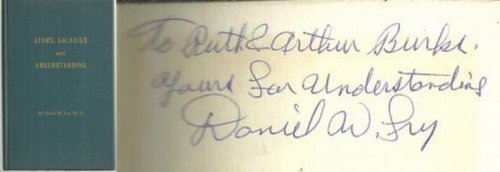 ATOMS, GALAXIES
and
UNDERSTANDING
By Daniel W. Fry, Ph. D.
To Ruth & Arthur Burks.
Yours for Understanding
Daniel W. Fry